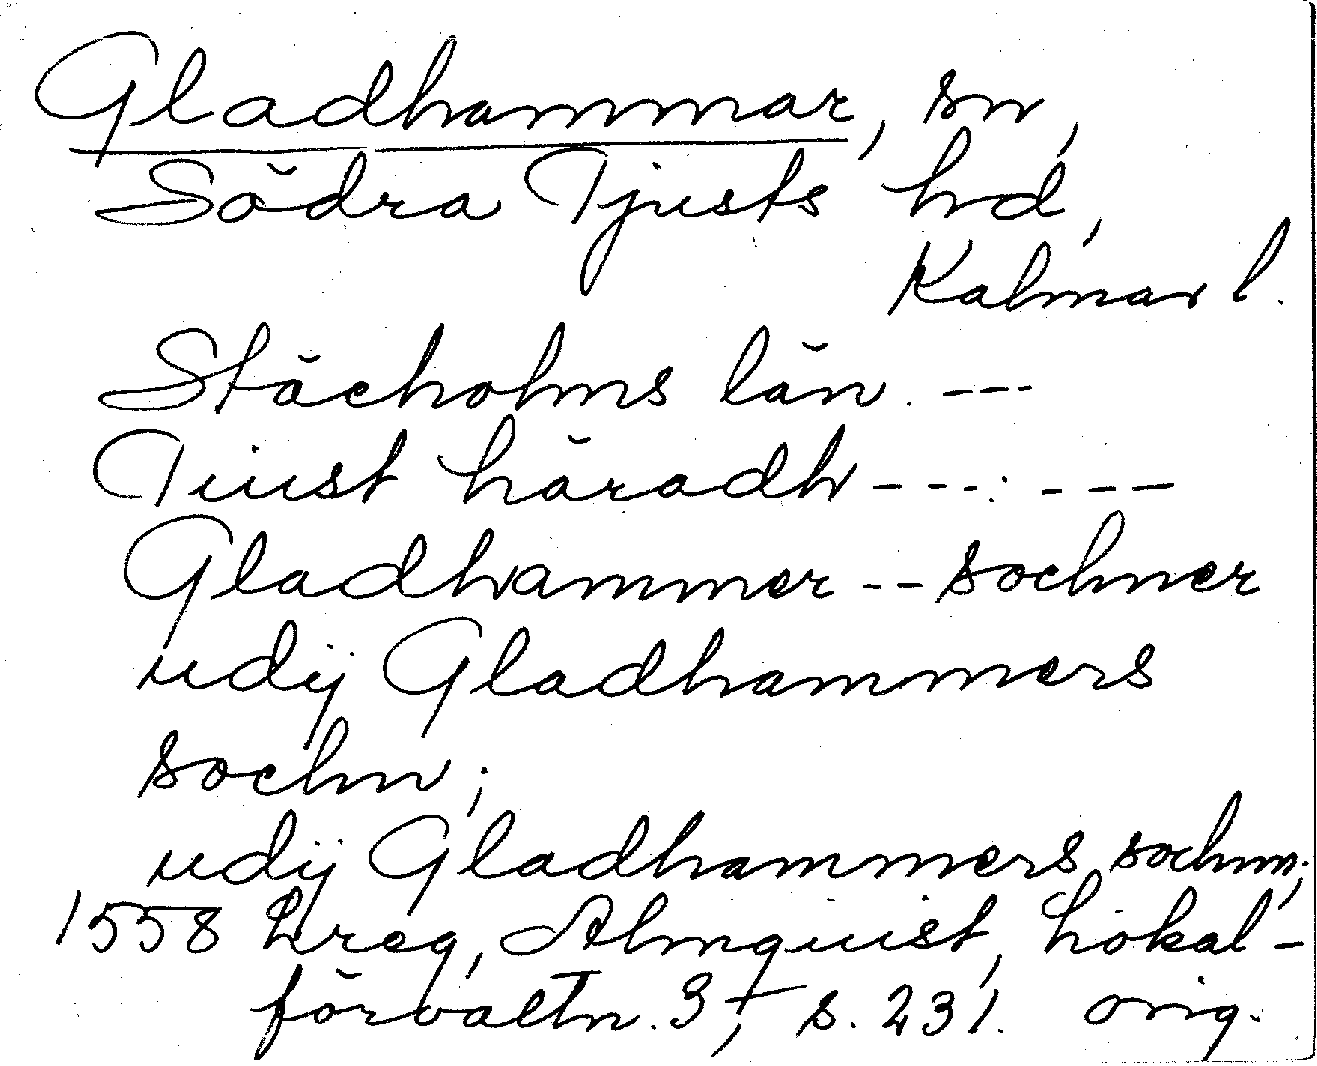 Gladhammar, sn,
Södra Tjusts hd,
Kalmar l.
Stächolms län. ---
Tiust häradh --- . ---
Gladhammer -- sochner
udij Gladhammers
sochn;
udij Gladhammers sochnn;
1558 Lreg, Almquist, Lokal-
förvaltn. 3, s. 231. orig.